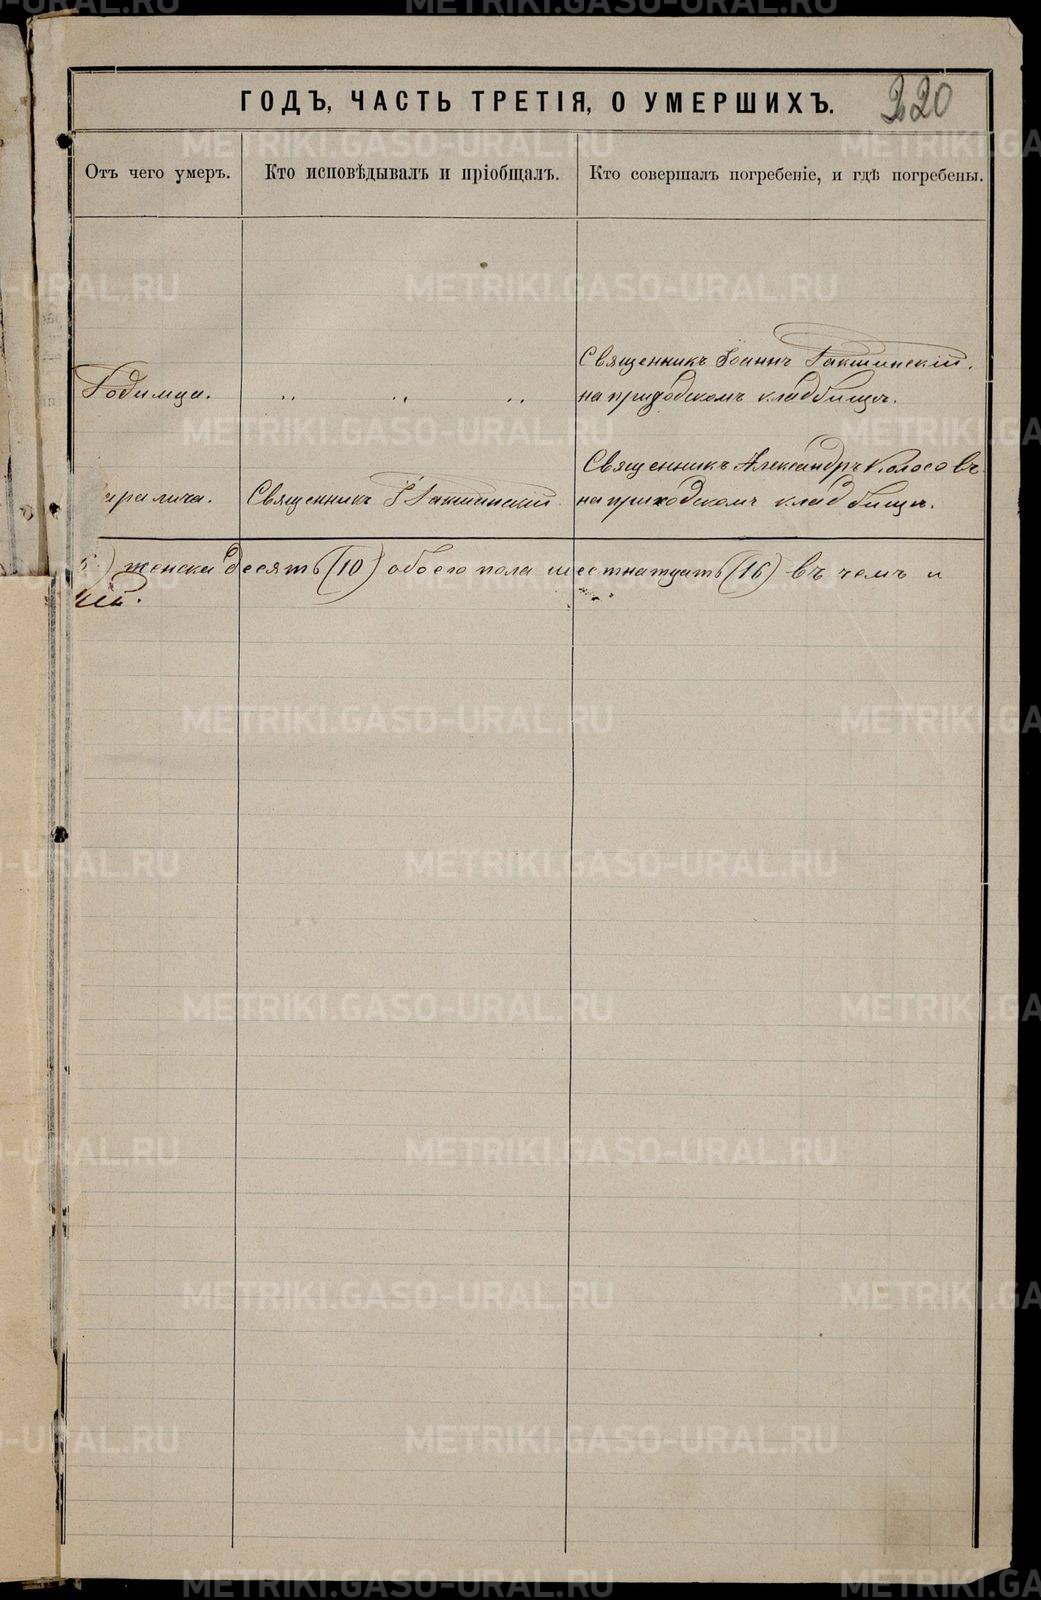 ГОДЪ, ЧАСТЬ ТРЕТІЯ, О УМЕРШИХЪ.
220
Отъ чего умеръ.
Кто исповѣдывалъ и пріобщалъ.
Кто совершалъ погребеніе, и гдѣ погребены.
Родимца.
Священникъ Іоаннъ Гакшинскій.
на приходскомъ кладбищѣ.
паралича.
Священникъ І Гакшинскій
Священникъ Александръ Колосовъ
на приходскомъ кладбищѣ.
) женска десять (10) обоего пола шестнатцать (16) въ чемъ и
METRIKI.GASO-URAL.RU